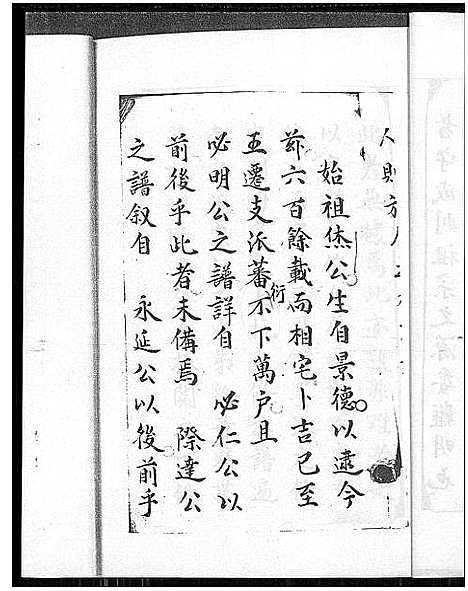 人則方人
始祖杰公生自景德以逮今
茲六百餘載而相宅卜吉已至
五遷支派蕃衍不下萬户且
必明公之譜詳自 必仁公以
前後乎此者未備焉 際達公
之譜叙自 永延公以後前乎